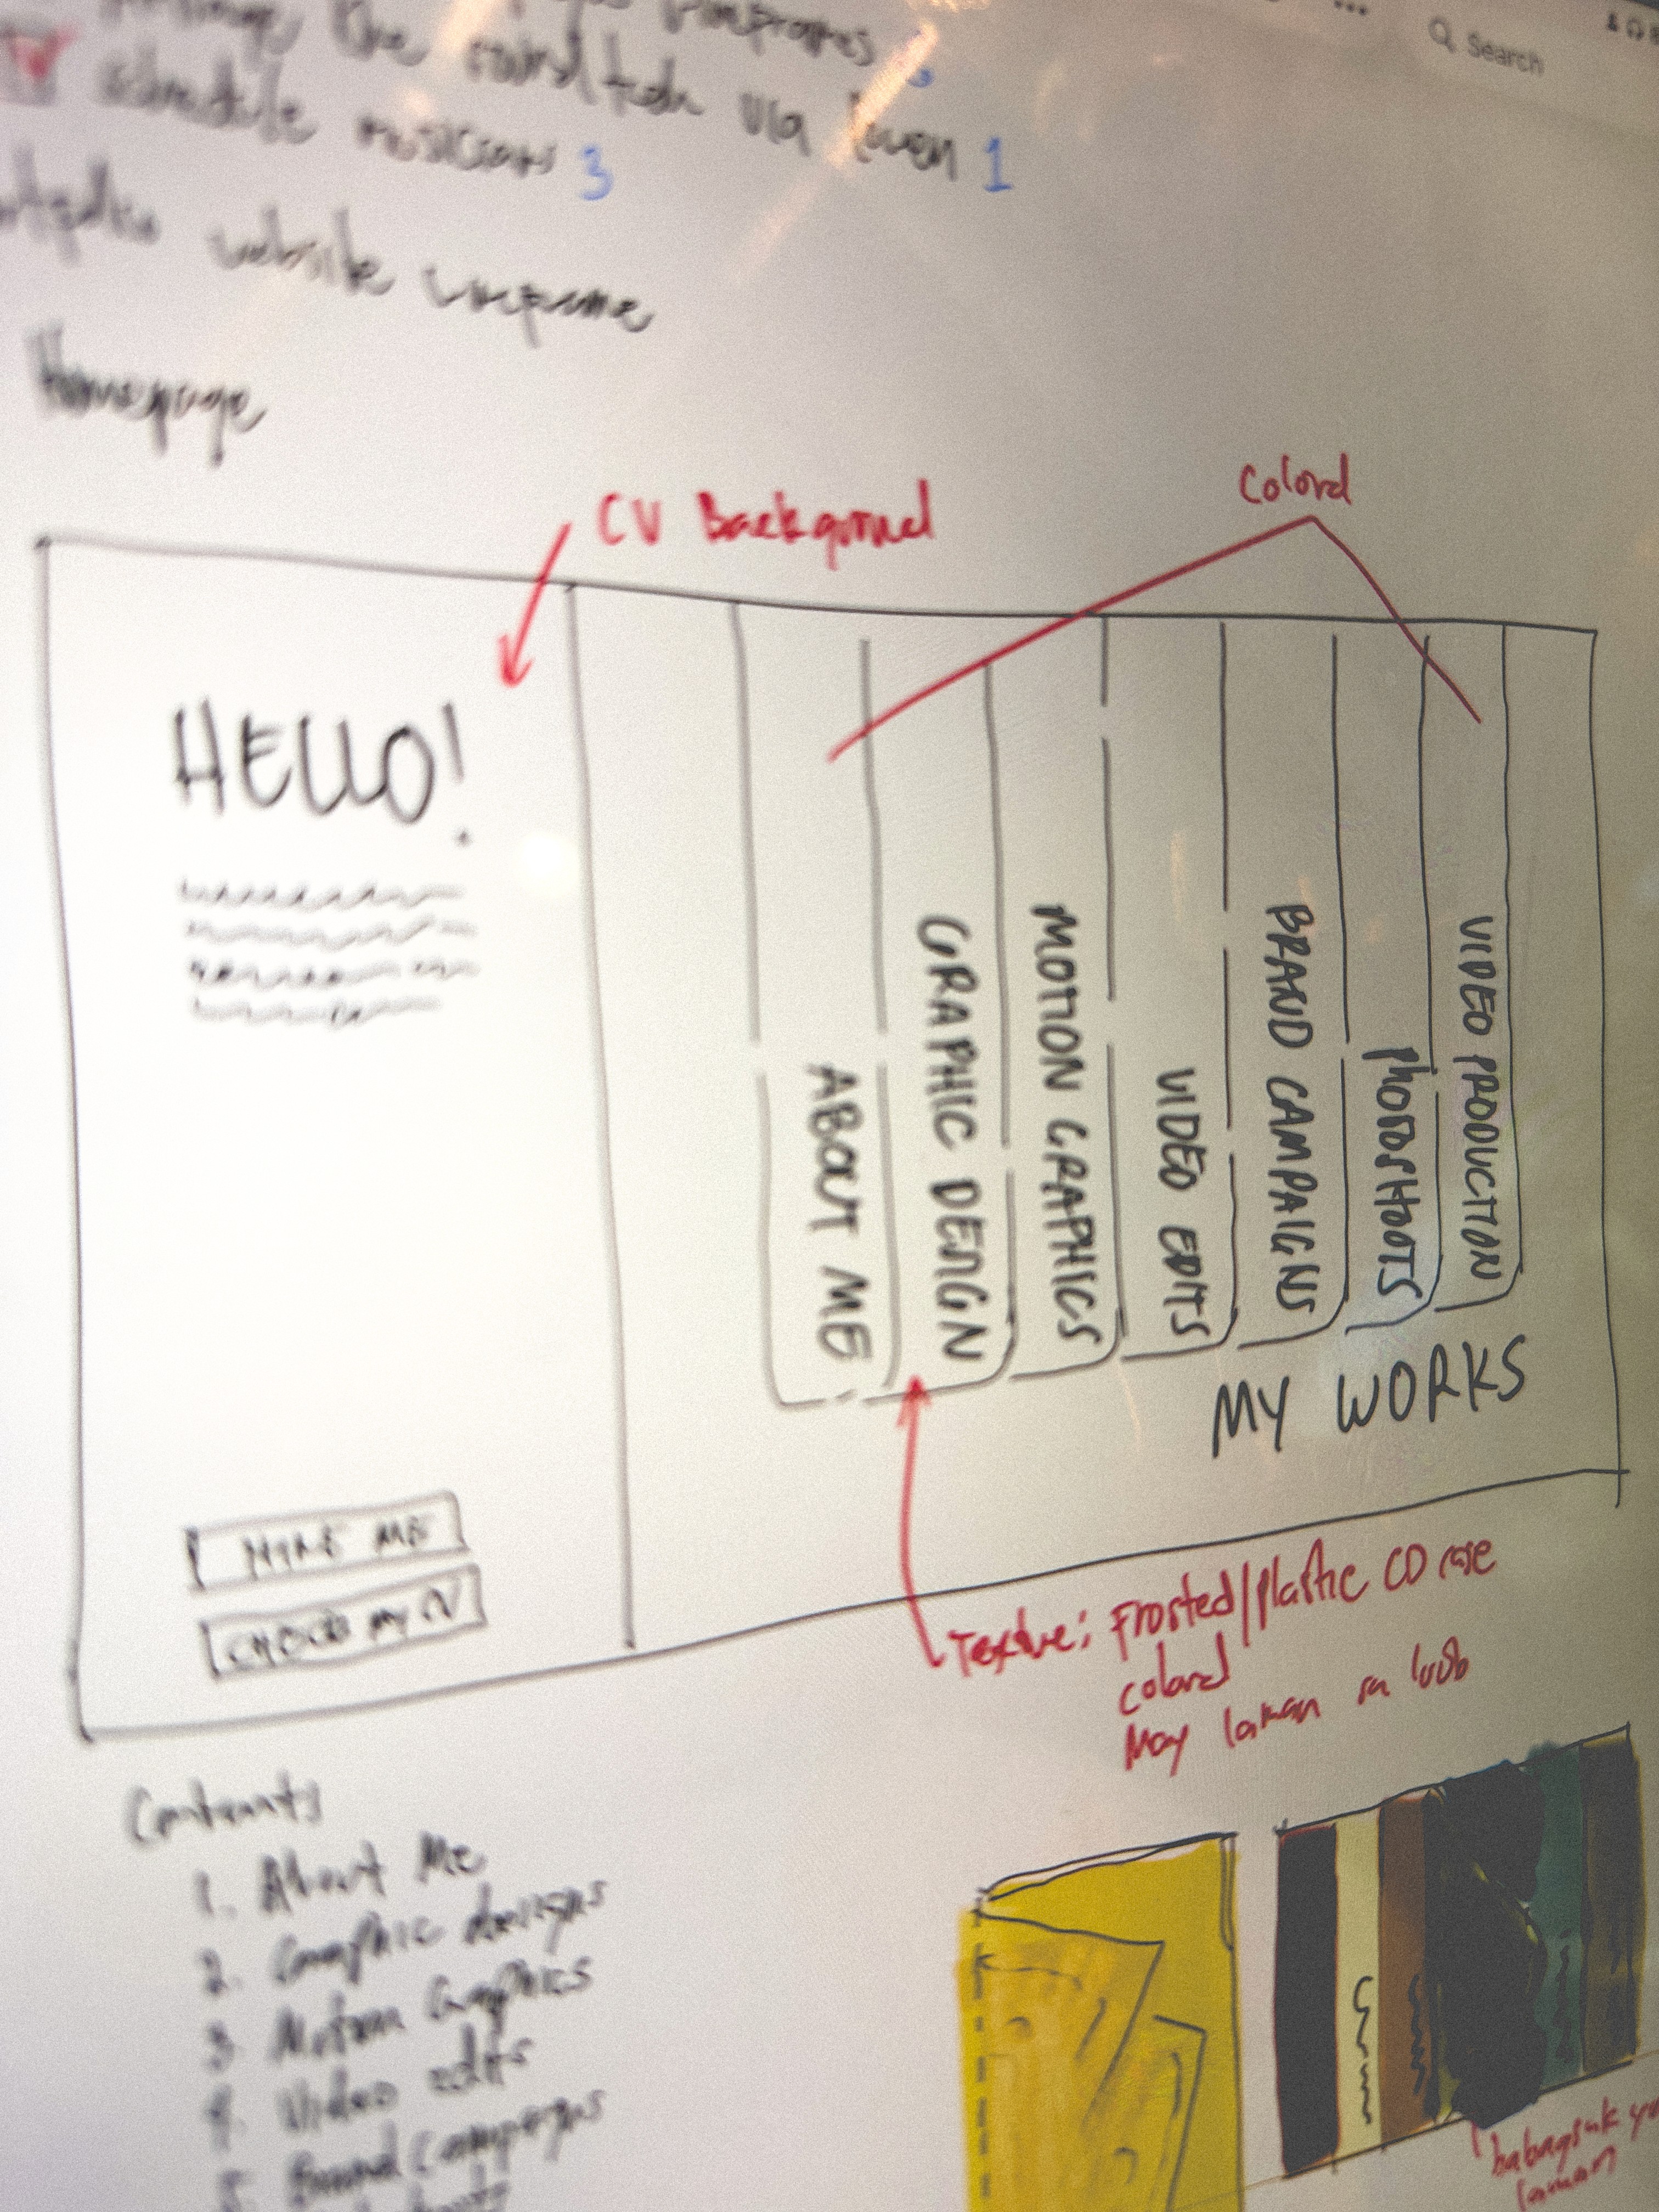 Search
the via 1
schedule musicians 3
website
Homepage
CV Background
Colord
HELLO!
ABOUT ME
GRAPHIC DESIGN
MOTION GRAPHICS
VIDEO EDITS
BRAND CAMPAIGNS
PHOTOSHOOTS
VIDEO PRODUCTION
MY WORKS
HIRE ME
CHECK MY CV
Texture: Frosted/plastic CD case
colored
May laman sa loob
Contents
1. About Me
2. Graphic designs
3. Motion Graphics
4. Video edits
5. Brand Campaigns
babagsak
laman